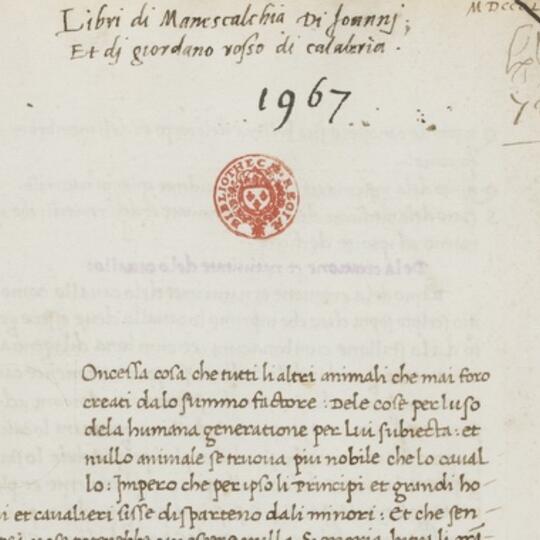 Libri di Manescalchia Di Joannj;
MDCCC
Et dj giordano rosso di calabria.
1967
BIBLIOTHECÆ REGIÆ
Oncessa cosa che tutti li altri animali che mai foro
creati da lo summo factore : Dele cose per luso
dela humana generatione per lui subiecta : et
nullo animale se truova piu nobile che lo caual
lo : Impero che per ipso li principi et grandi ho
i et caualieri sisse disparteno dali minori : Et che sen